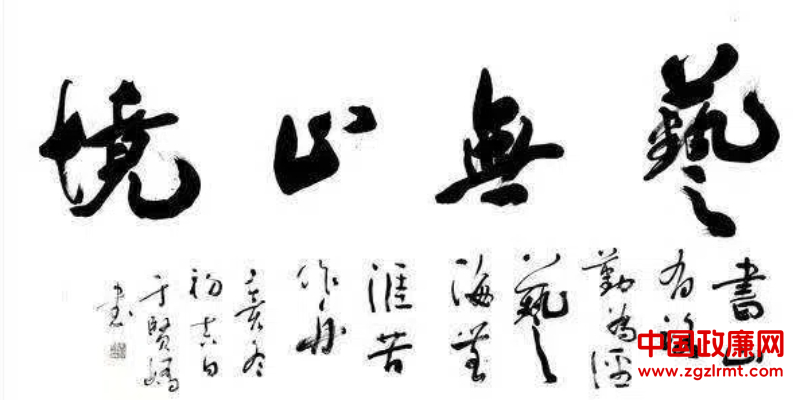 藝無止境
書山
有路
勤為徑
藝
海無
涯苦
作舟
初吉日
于賢
書
中国政廉网
www.zgzlrmt.com